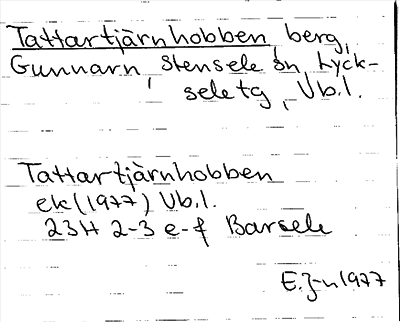 Tattartjärnhobben, berg,
Gunnarn, Stensele sn, Lyck-
sele tg, Vb.l.
Tattartjärnhobben
ek (1977) Vb.l.
23H 2-3 e-f Barsele
E.J-n 1977